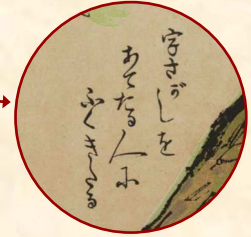 字さがしを
あてたる人に
ふくきたる